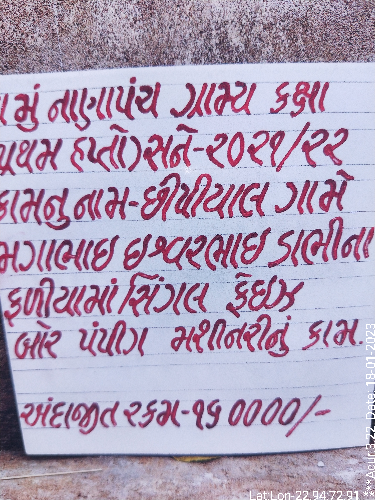 મું નાણાપંચ ગ્રામ્ય કક્ષા
પ્રથમ હપ્તો) સને-૨૦૨૧/૨૨
કામનુ નામ-છીપીયાલ ગામે
મગાભાઇ ઇશ્વરભાઇ ડાભીના
ફળીયામાં સિંગલ ફેઇઝ
બોર પંપીગ મશીનરીનું કામ.
અંદાજીત રકમ-૧૬૦૦૦૦/-
Lat Lon-22.94 72.91
Date. 18-01-2023